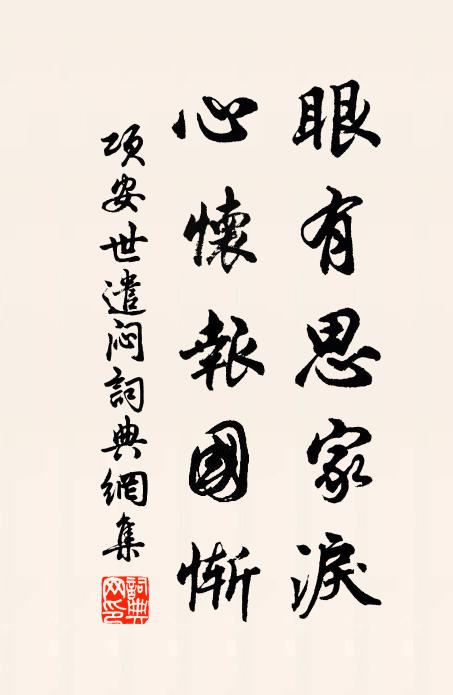 眼有思家淚
心懷報國慚
項安世遣闷詞典網集
詞典網印